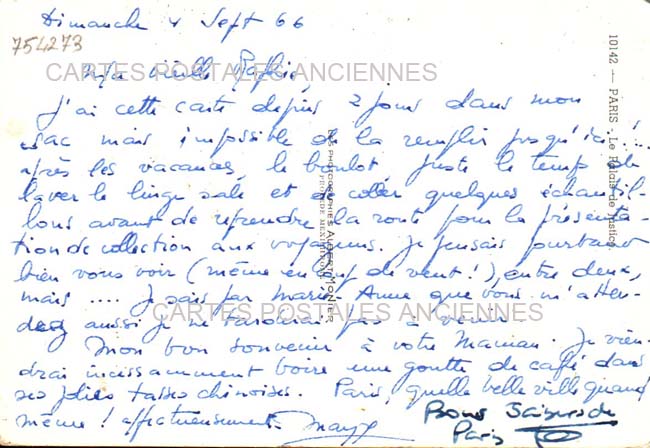 Dimanche 4 Sept 66
754273
Ma vieille
CARTES POSTALES ANCIENNES
J'ai cette carte depuis 2 jours dans mon
sac mais impossible de la remplir jusqu'ici ...
après les vacances, le boulot juste le temps de
laver le linge sale et de coller quelques échantil-
lons avant de reprendre la route pour la présenta-
tion de collection aux voyageurs. Je pensais pourtant
bien vous voir (même en coup de vent!), entre deux,
mais .... Je sais par Marie Anne que vous m'atten-
dez aussi je ne tarderai pas à venir.
CARTES POSTALES ANCIENNES
Mon bon souvenir à votre Maman. Je vien-
drai incessamment boire une goutte de café dans
ses jolies tasses chinoises. Paris, quelle belle ville quand
même! affectueusement
Bons Baisers de
Paris
10142 — PARIS - Le Palais de Justice
LES PHOTOGRAPHIES ALBERT MONIER